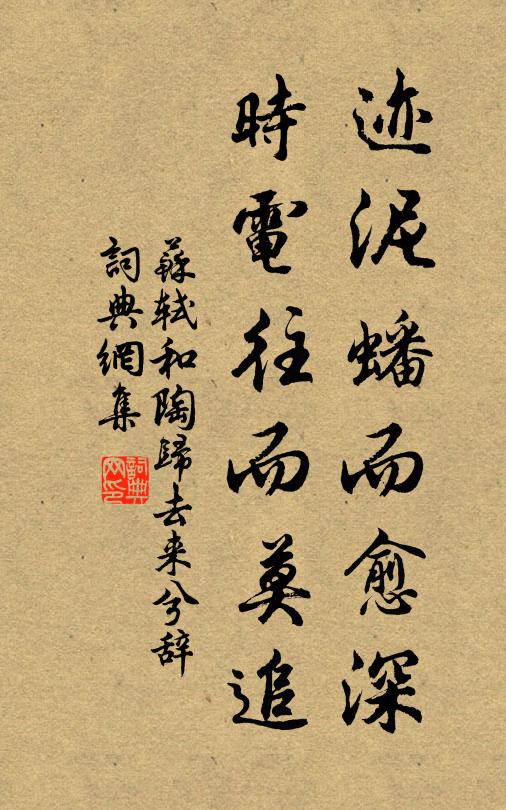 迹泥蟠而愈深
時電往而莫追
蘇軾和陶歸去来兮辞
詞典網集
詞典网印